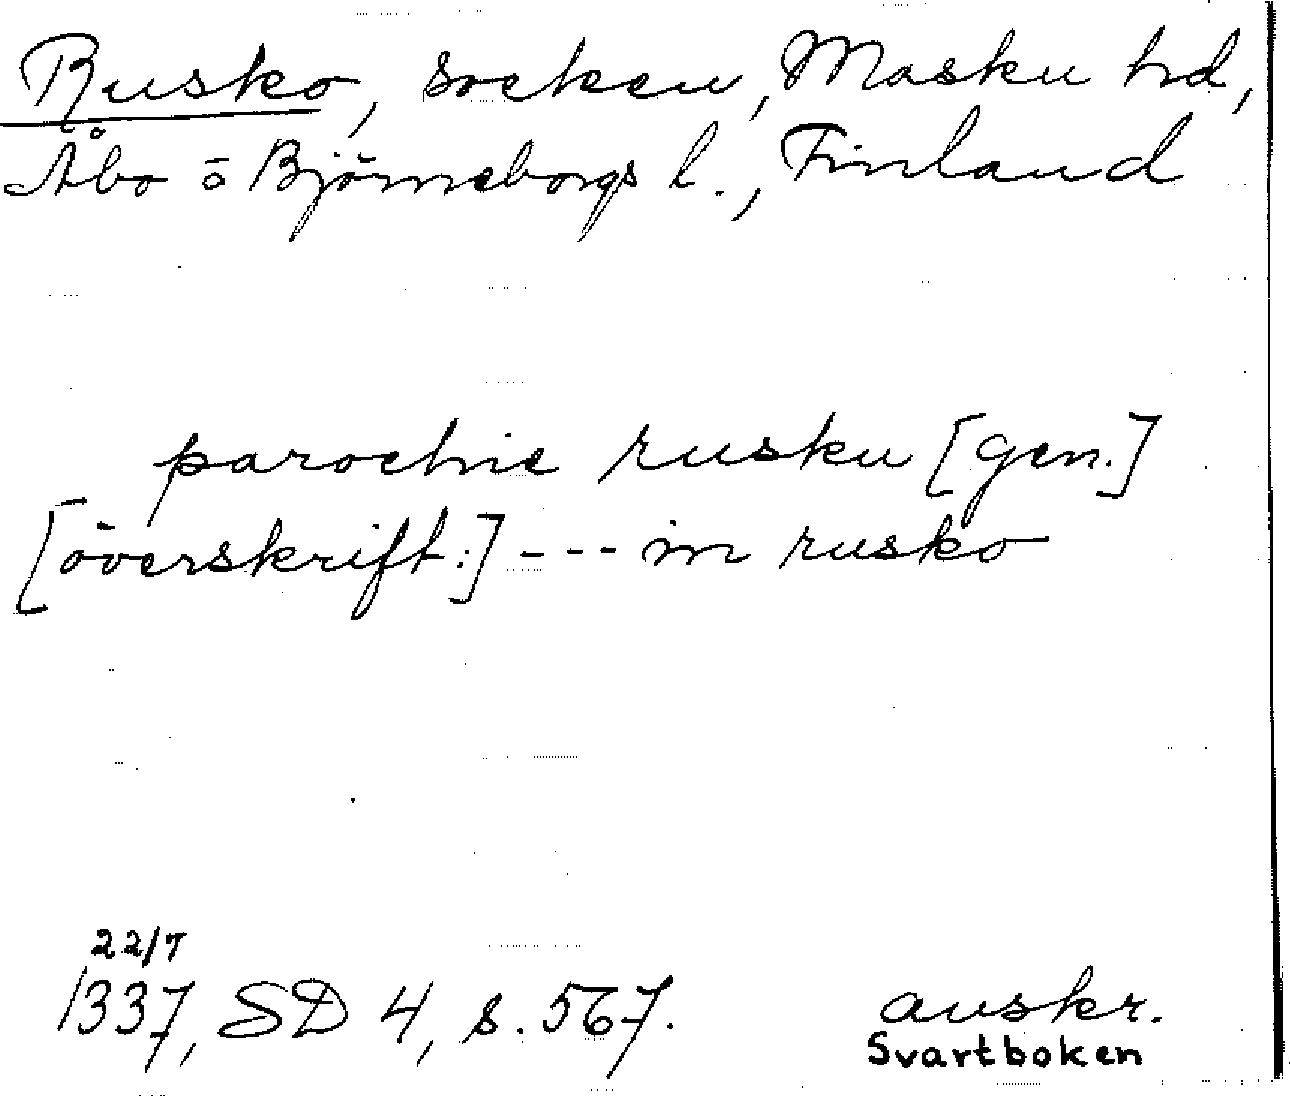 Rusko, socken, Masku hd,
Åbo o Björneborgs l., Finland
parochie rusku [gen.]
[överskrift:] --- in rusko
22/7
1337, SD 4, s. 567.
avskr.
Svartboken